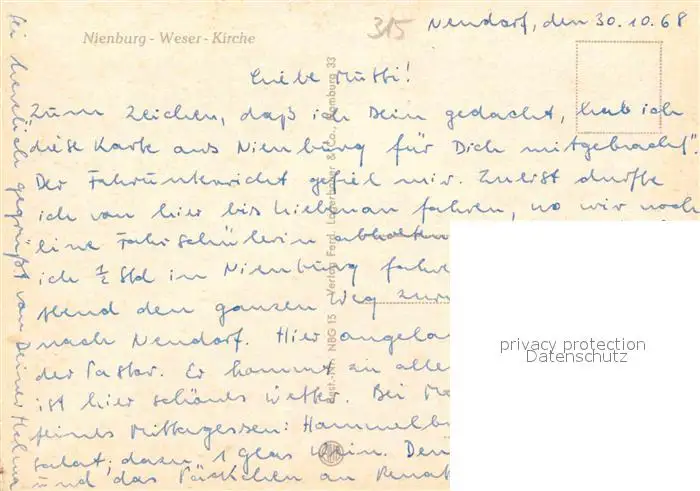 Nendorf, den 30.10.68
315
Nienburg - Weser - Kirche
Liebe Mutti!
Zum Zeichen, daß ich Dein gedacht, hab ich
diese Karte aus Nienburg für Dich mitgebracht!
Der Fahrunterricht gefiel mir. Zuerst durfte
ich von hier bis Liebenau fahren, wo wir noch
eine Fahrschülerin abholten
ich 1/2 Std in Nienburg
den ganzen Weg
nach Nendorf. Hier
der Pastor. Er kommt zu
ist hier schönes Wetter. Bei
feines Mittagessen:
salat, dazu 1 Glas Wein.
und das Päckchen an
Sei herzlich gegrüßt von Deiner
Best.-Nr. NBG 15 Verlag Ferd. Lagerbauer & Co., Hamburg 33
privacy protection
Datenschutz